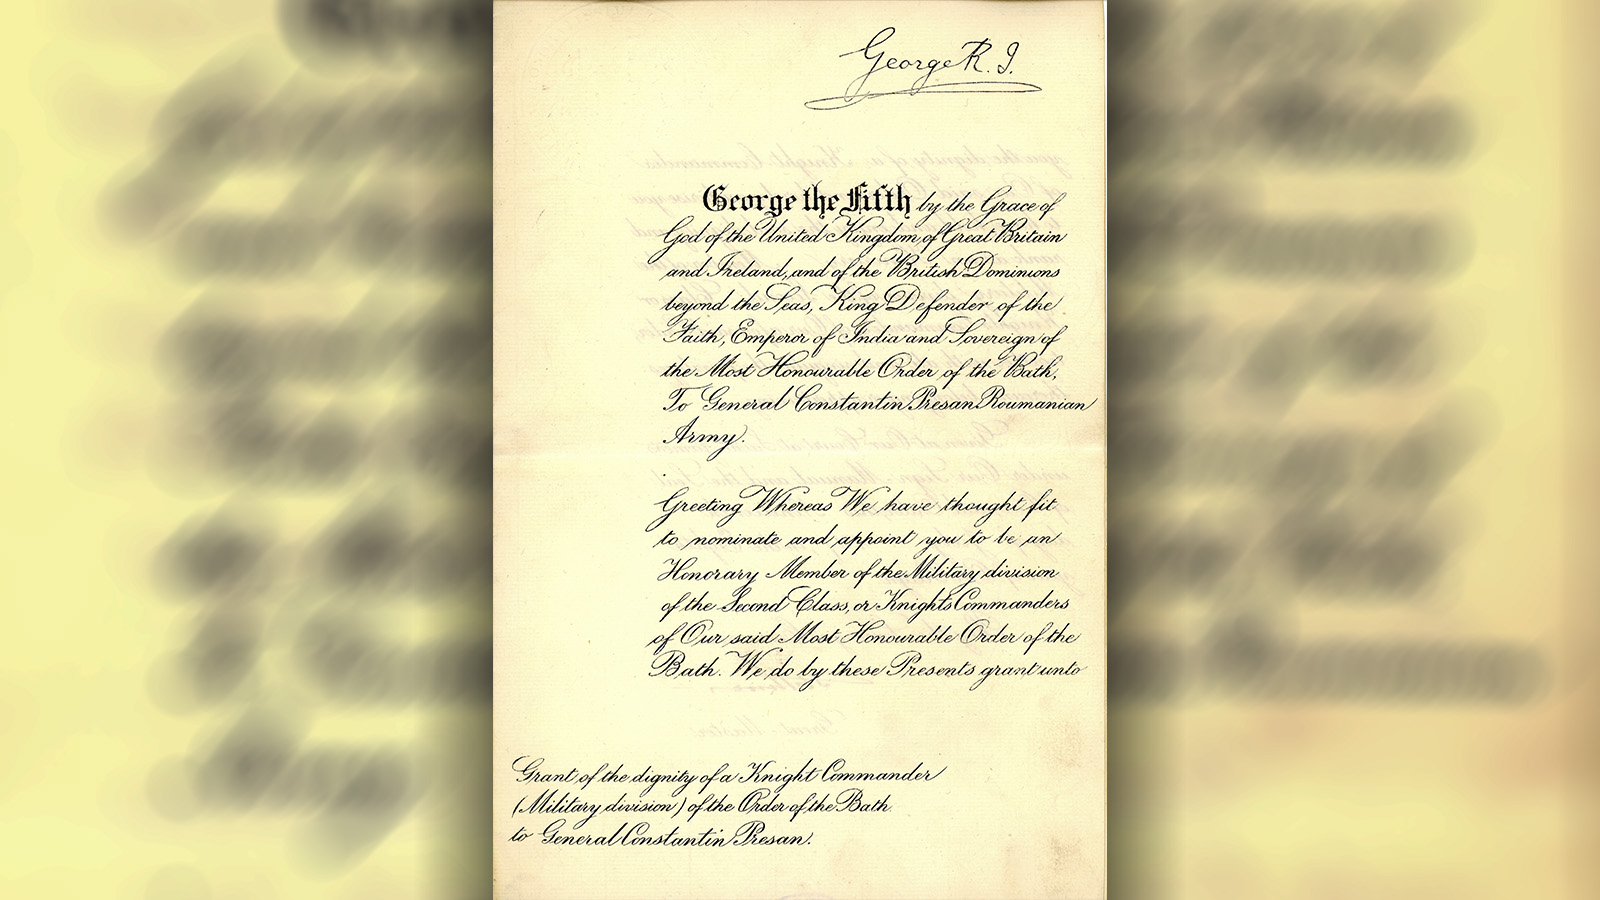 George R. I.
George the Fifth by the Grace of
God of the United Kingdom of Great Britain
and Ireland, and of the British Dominions
beyond the Seas, King Defender of the
Faith, Emperor of India and Sovereign of
the Most Honourable Order of the Bath,
To General Constantin Presan Roumanian
Army.
Greeting Whereas We have thought fit
to nominate and appoint you to be an
Honorary Member of the Military division
of the Second Class, or Knights Commanders
of Our said Most Honourable Order of the
Bath. We do by these Presents grant unto
Grant of the dignity of a Knight Commander
(Military division) of the Order of the Bath
to General Constantin Presan.